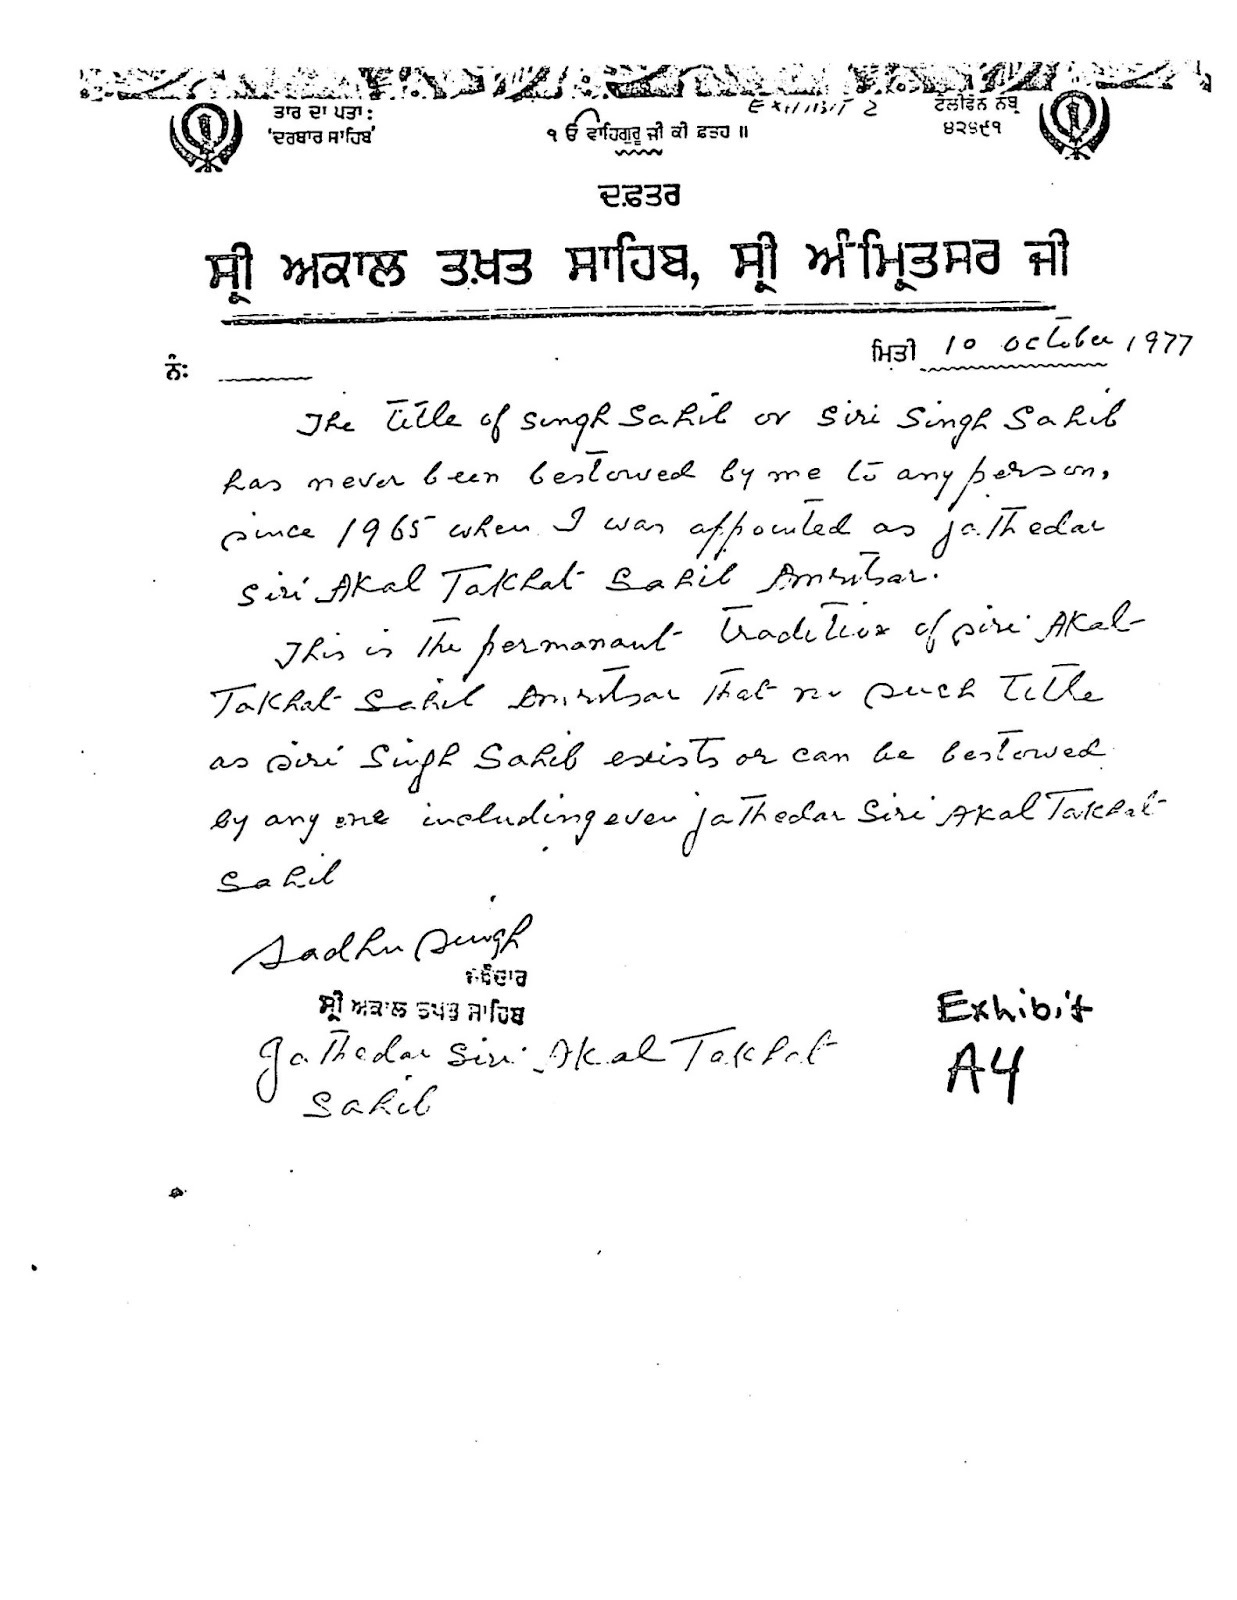 ਤਾਰ ਦਾ ਪਤਾ :
'ਦਰਬਾਰ ਸਾਹਿਬ'
੧ ੳ ਵਾਹਿਗੁਰੂ ਜੀ ਕੀ ਫ਼ਤਹ ॥
2
ਟੈਲੀਫੋਨ ਨੰਬ੍ਰ
ਦਫ਼ਤਰ
ਸ੍ਰੀ ਅਕਾਲ ਤਖ਼ਤ ਸਾਹਿਬ, ਸ੍ਰੀ ਅੰਮ੍ਰਿਤਸਰ ਜੀ
ਨੰ:
ਮਿਤੀ 10 October 1977
The title of Singh Sahib or Siri Singh Sahib
has never been bestowed by me to any person,
since 1965 when I was appointed as Jathedar
Siri Akal Takhat Sahib Amritsar.
This is the permanant tradition of siri Akal
Takhat Sahib Amritsar that no such title
as siri Singh Sahib exists or can be bestowed
by any one including even Jathedar Siri Akal Takhat
Sahib
Sadhu Singh
ਸ੍ਰੀ ਅਕਾਲ ਤਖਤ ਸਾਹਿਬ
Jathedar Siri Akal Takhat
Sahib
Exhibit
A4